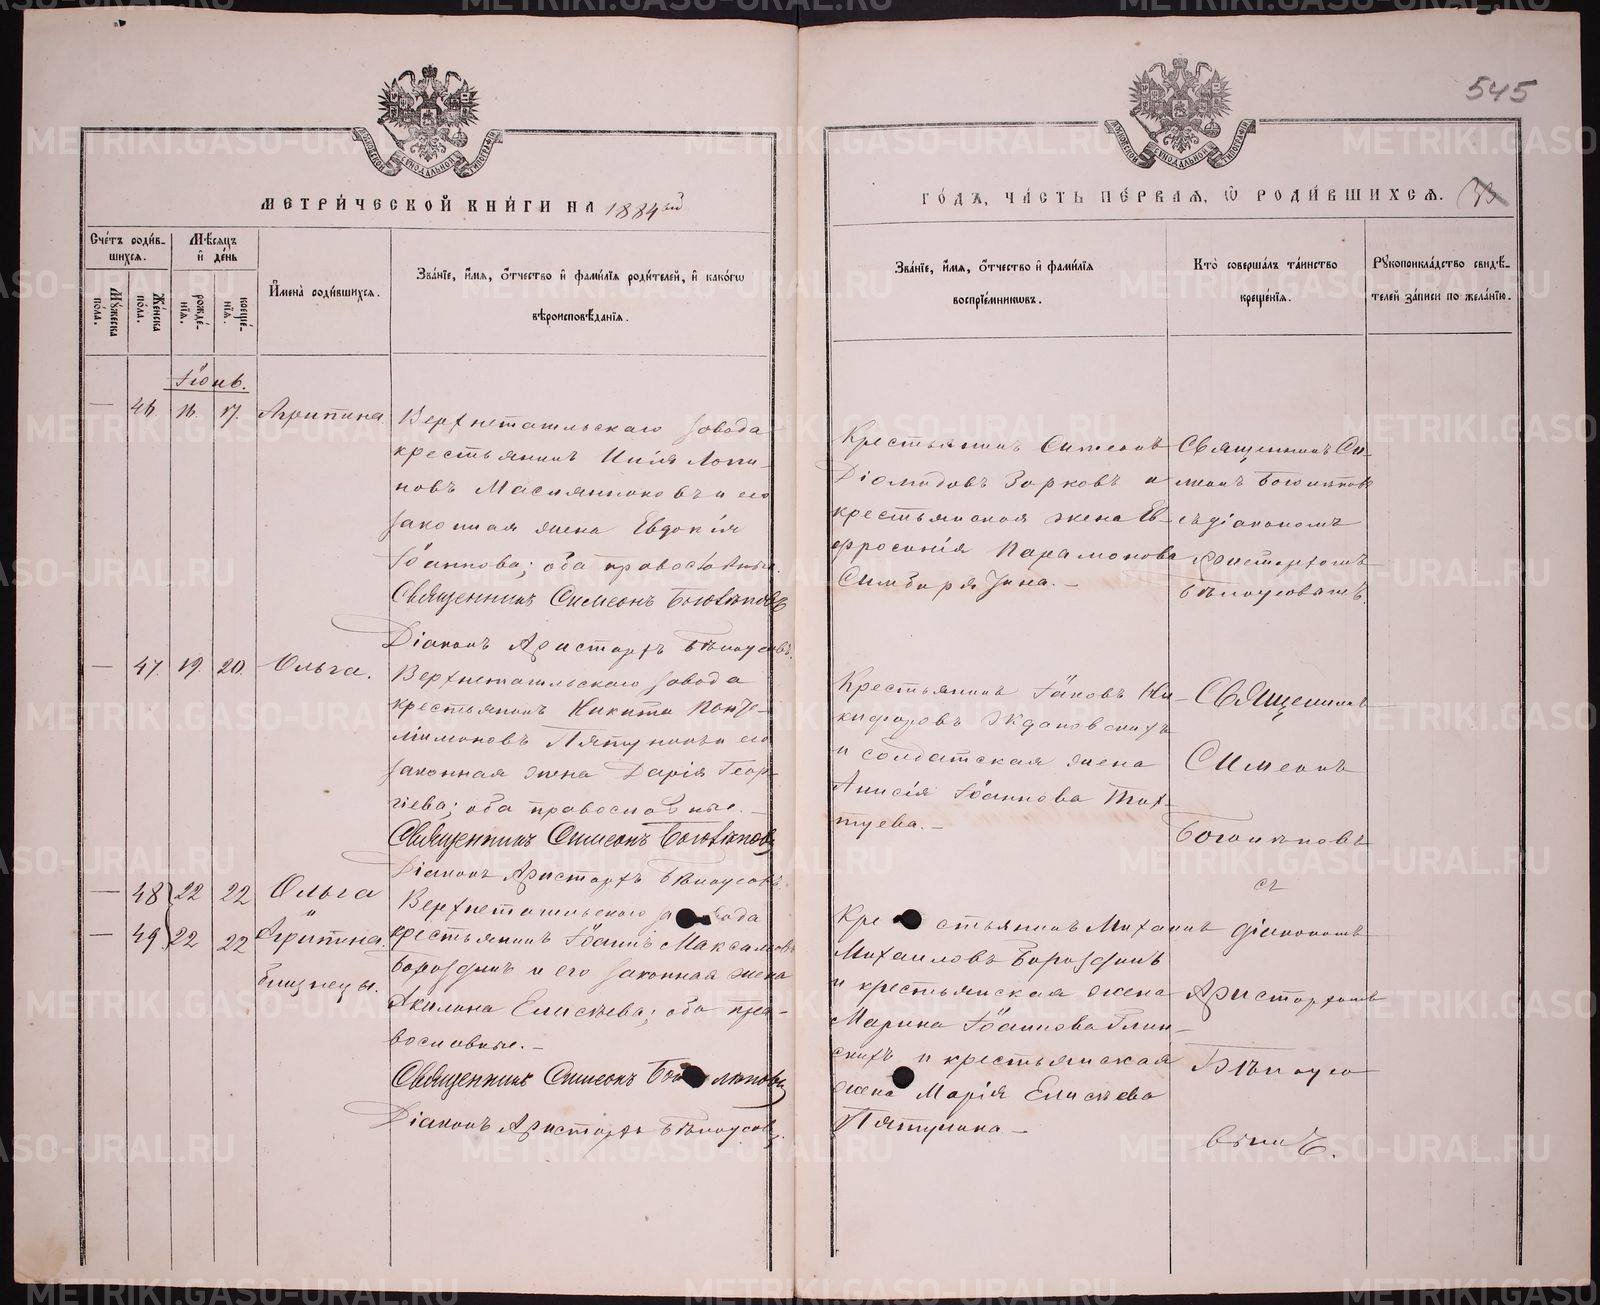 545
МОСКОВСКОЙ СѴНОДАЛЬНОЙ ТИПОГРАФІИ
МОСКОВСКОЙ СѴНОДАЛЬНОЙ ТИПОГРАФІИ
МЕТРИ́ЧЕСКОЙ КНИ́ГИ НА 1884ый
ГО́ДЪ, ЧА́СТЬ ПЕ́РВАЯ, Ѡ РОДИ́ВШИХСЯ.
Сче́тъ роди́в-
шихся.
Мꙋжеска по́ла.
Же́нска по́ла.
Мѣсяцъ и де́нь
рожде́-
нія.
креще́-
нія.
Имена̀ роди́вшихся.
Зва́ніе, и́мя, о́тчество и фами́лія роди́телей, и како́гѡ
вѣроисповѣ́данія.
Зва́ніе, и́мя, о́тчество и фами́лія
воспріе́мникѡвъ.
Кто̀ соверша́лъ та́инство
креще́нія.
Рꙋкоприкла́дство свидѣ́-
телей за́писи по жела́нію.
Іюнь.
— 46. 16. 17. Агрипина
Верхнетагильскаго завода
крестьянинъ Илія Логи-
новъ Маслянниковъ и его
законная жена Евдокія
Іоаннова; оба православные.
Священникъ Симеонъ Боголѣповъ
Діаконъ Аристархъ Бѣлоусовъ.
Крестьянинъ Симеонъ
Діомидовъ Зорковъ и
крестьянская жена Ев-
фросинія Парамонова
Симбирязина. -
Священникъ Си-
меонъ Боголѣповъ
съ діакономъ
Аристархомъ
Бѣлоусовымъ.
— 47. 19. 20. Ольга.
Верхнетагильскаго завода
крестьянинъ Никита Панте-
лимоновъ Пятунинъ и его
законная жена Дарія Геор-
гіева; оба православные. -
Священникъ Симеонъ Боголѣповъ
Діаконъ Аристархъ Бѣлоусовъ.
Крестьянинъ Іаковъ Ни-
кифоровъ Ждановскихъ
и солдатская жена
Анисія Іоаннова Тох-
туева. -
Священникъ
Симеонъ
Боголѣповъ
съ
діакономъ
Аристархомъ
Бѣлоусо
вымъ.
— 48 22 22 Ольга
— 49 22 22 и Агрипина
близнецы.
Верхнетагильскаго завода
крестьянинъ Іоаннъ Максимовъ
Бороздинъ и его законная жена
Акилина Елисѣева; оба пра-
вославные. -
Священникъ Симеонъ Боголѣповъ
Діаконъ Аристархъ Бѣлоусовъ.
Крестьянинъ Михаилъ
Михаиловъ Бороздинъ
и крестьянская жена
Марина Іоаннова Глин-
скихъ и крестьянская
жена Марія Елисѣева
Пятунина -